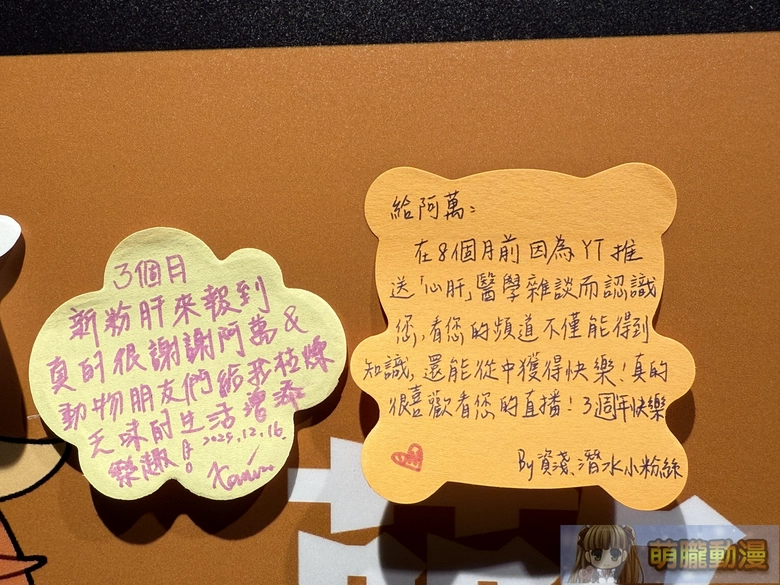 3個月
新粉肝來報到
真的很謝謝阿萬&
動物朋友們給我枯燥
乏味的生活增添
樂趣
2025.12.16.
給阿萬:
在8個月前因為YT推
送「心肝」醫學雜談而認識
您,看您的頻道不僅能得到
知識,還能從中獲得快樂!真的
很喜歡看您的直播!3週年快樂
By資淺潛水小粉絲
萌朧動漫